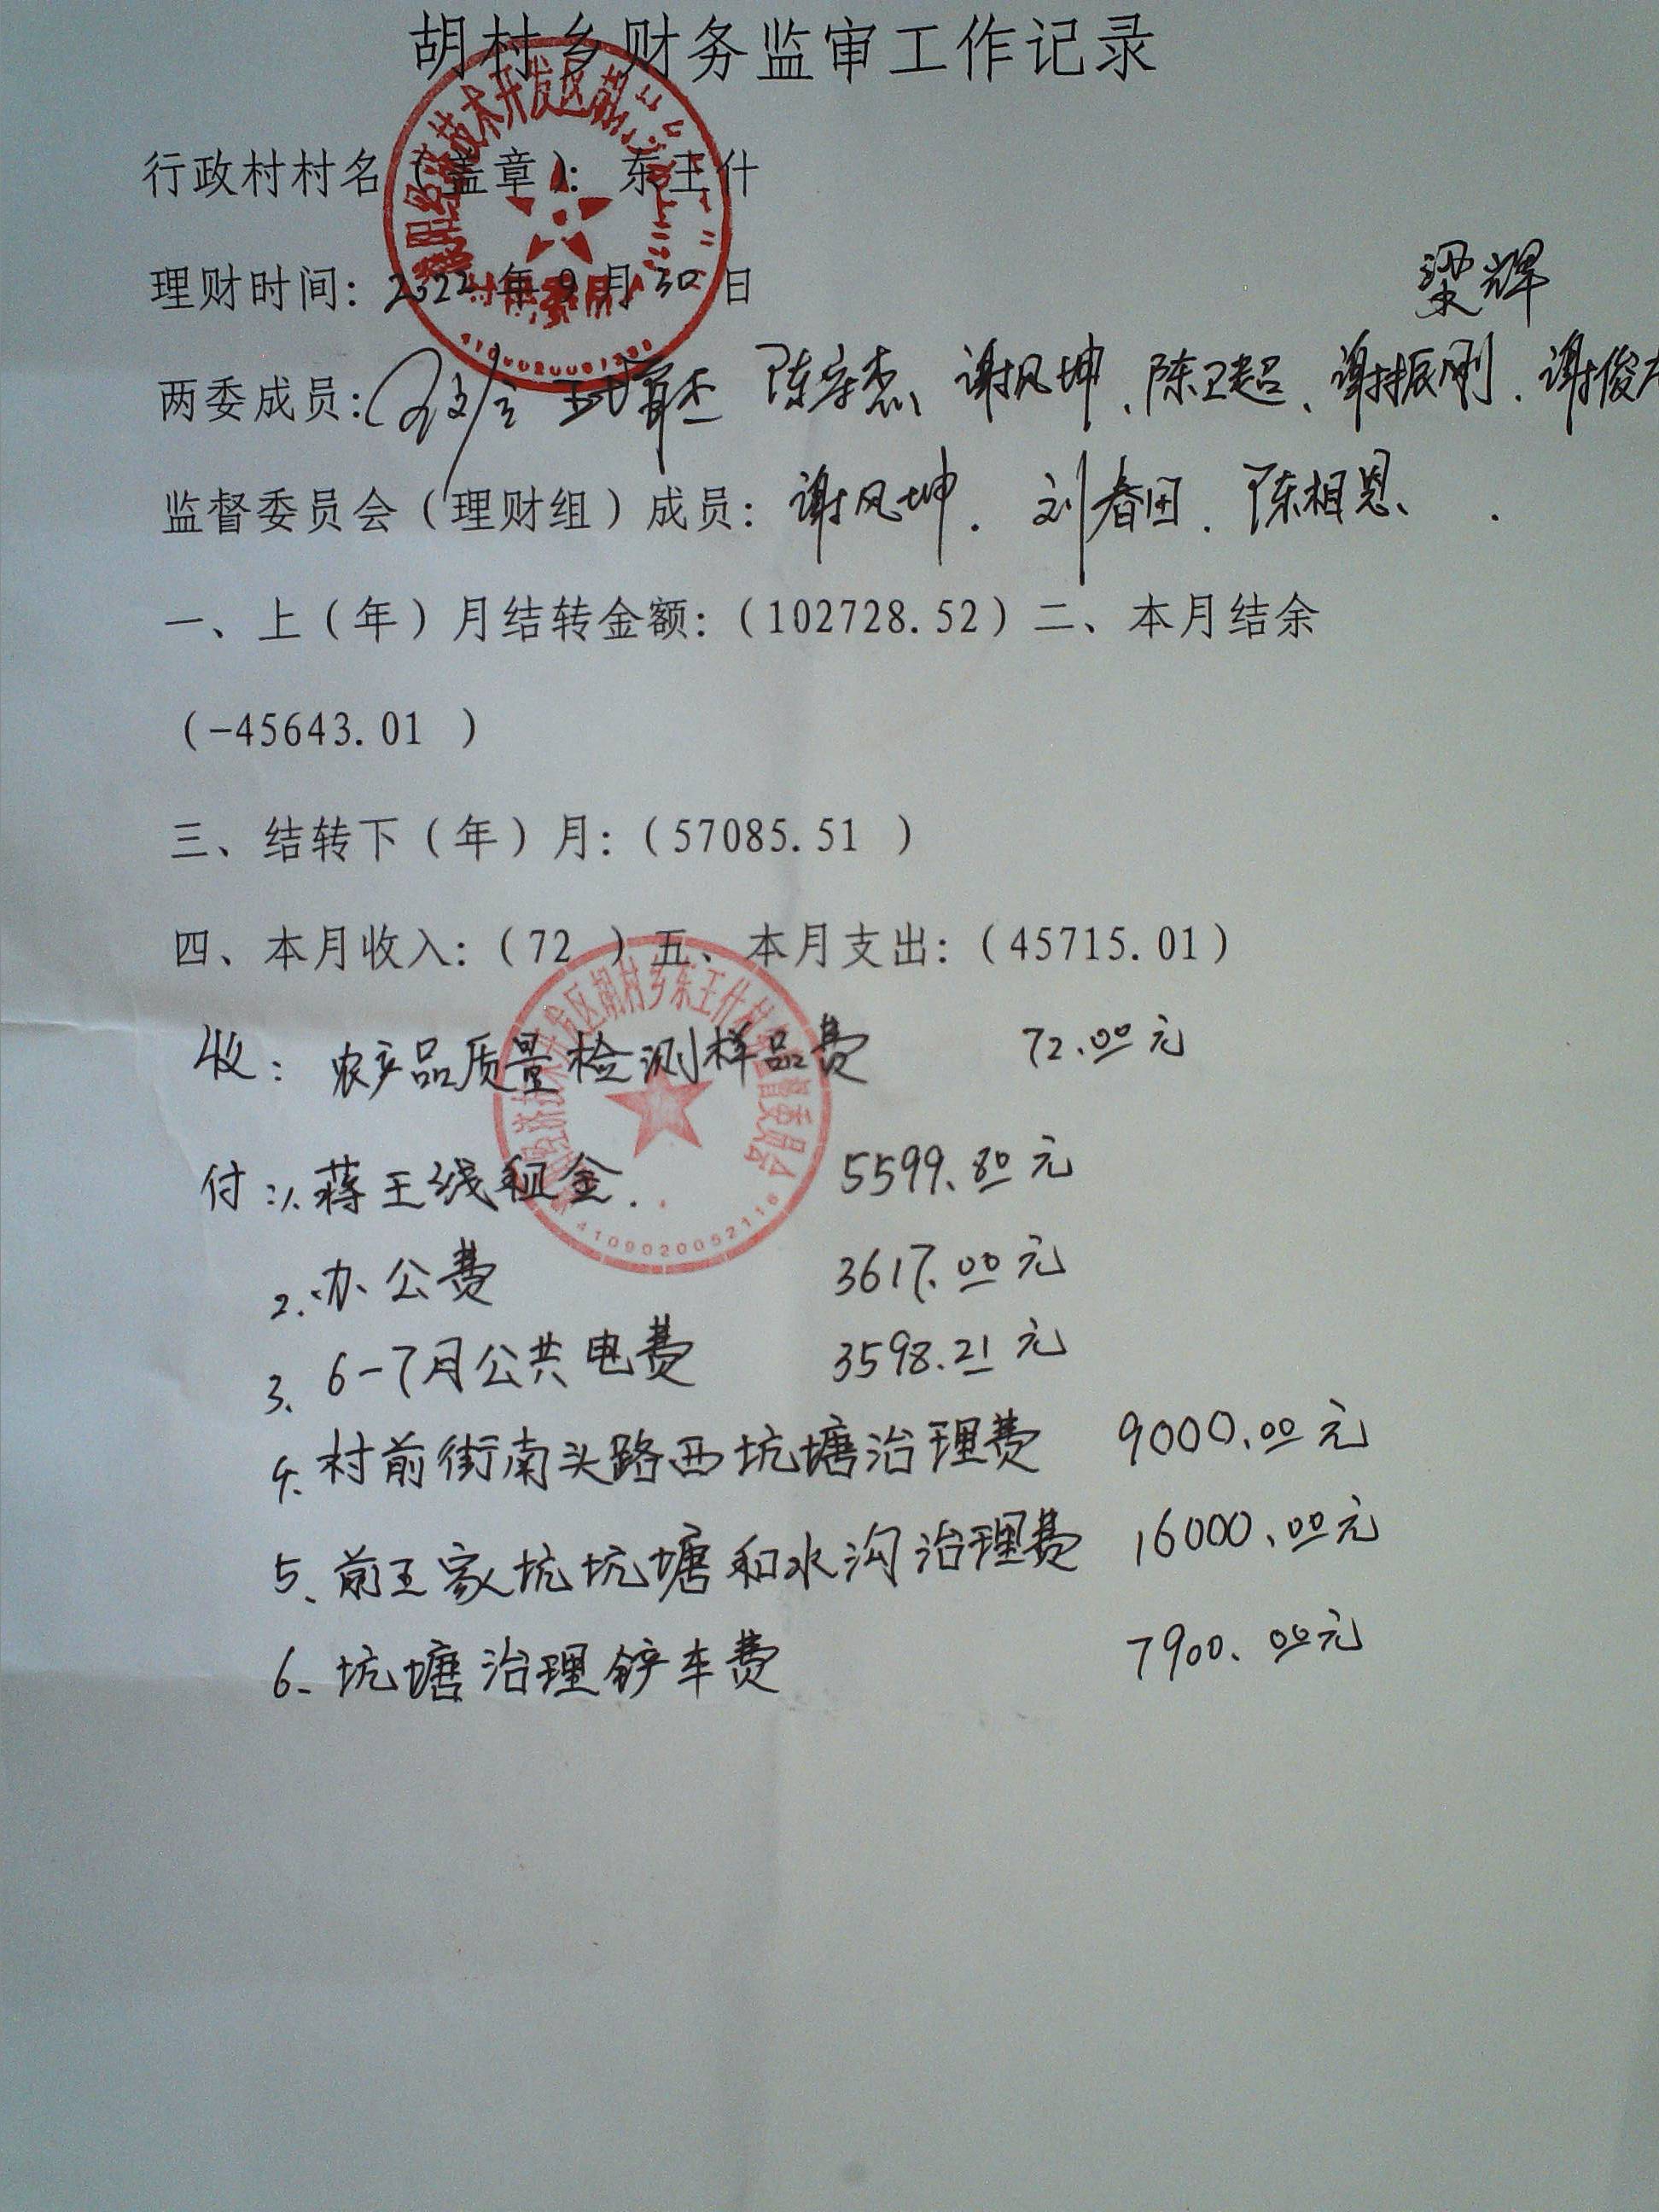 胡村乡财务监审工作记录
行政村村名（盖章）：东王什
理财时间：2022年9月30日
梁辉
两委成员： 陈宗杰、谢风坤、陈卫超、谢振刚、谢俊
监督委员会（理财组）成员：谢风坤、刘春田、陈相恩、
一、上（年）月结转金额：（102728.52）二、本月结余
（-45643.01 ）
三、结转下（年）月：（57085.51 ）
四、本月收入：（72 ）五、本月支出：（45715.01）
区胡村乡东王什村 督委员会
4109020052116
收：农产品质量检测样品费 72.00元
付：1、蒋王线租金. 5599.80元
2、办公费 3617.00元
3、6-7月公共电费 3598.21元
4、村前街南头路西坑塘治理费 9000.00元
5、前王家坑坑塘和水沟治理费 16000.00元
6、坑塘治理铲车费 7900.00元